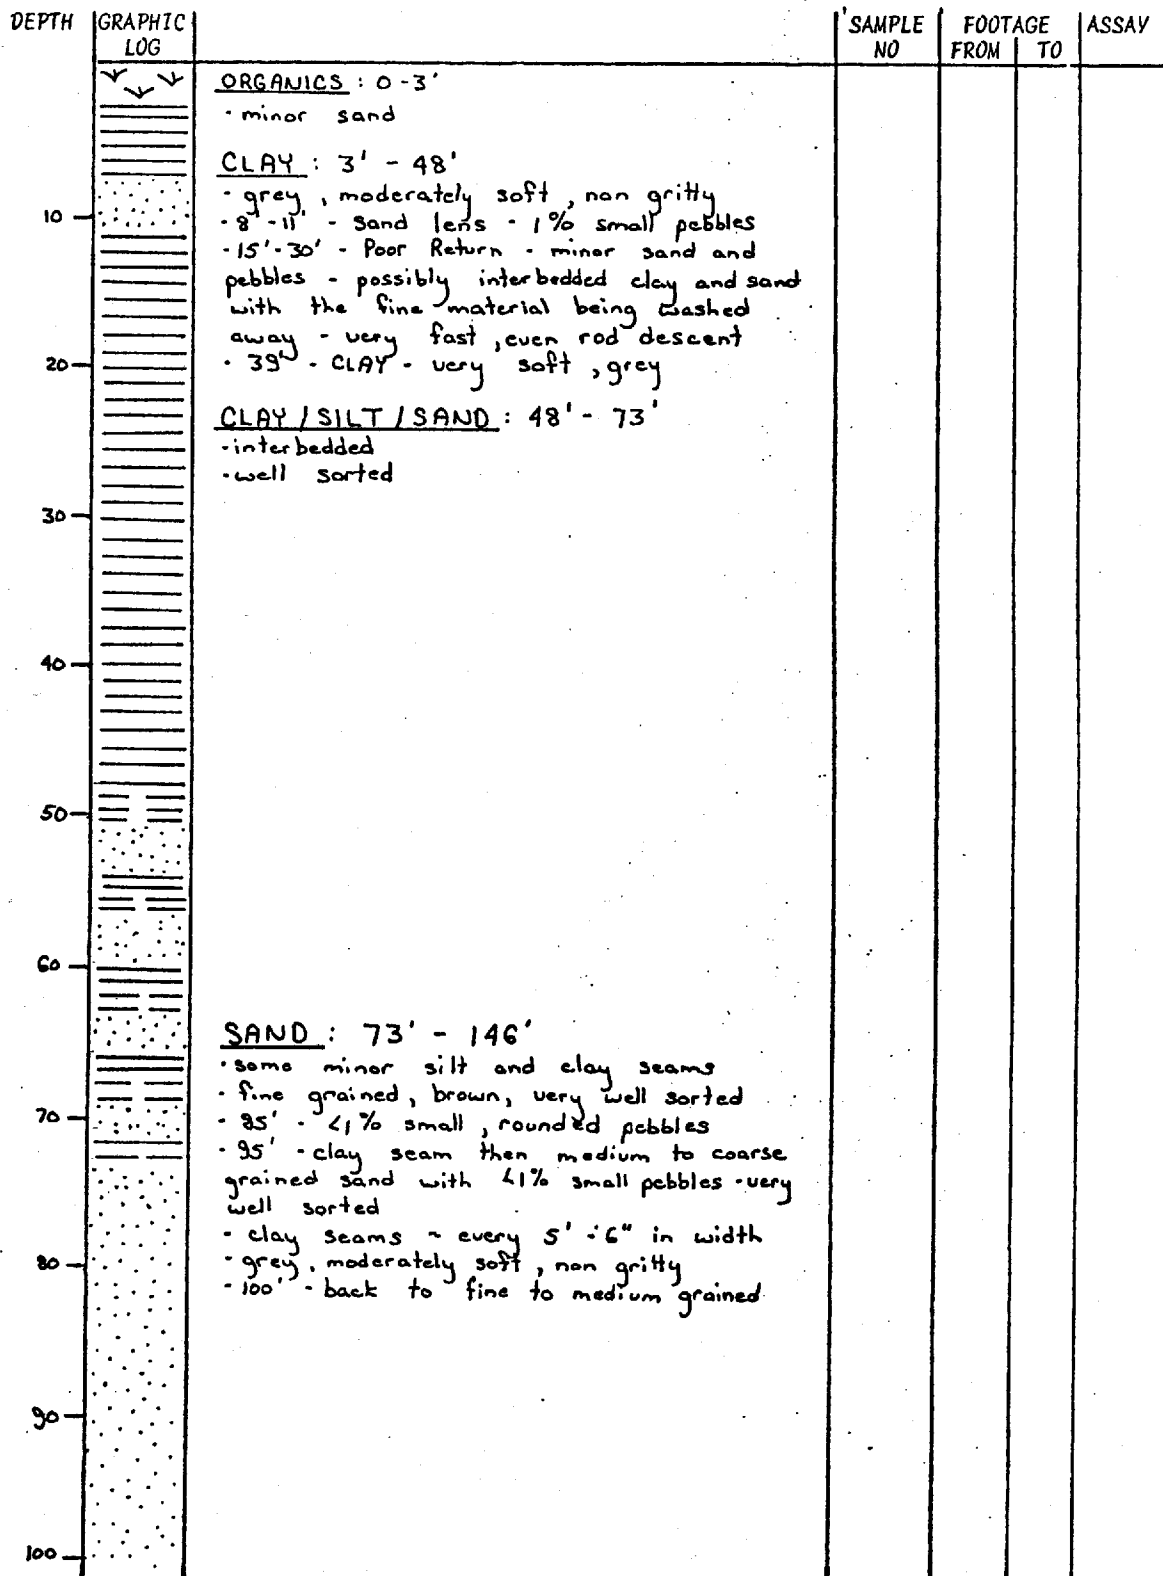 DEPTH GRAPHIC LOG SAMPLE NO FOOTAGE FROM TO ASSAY
ORGANICS : 0 -3'
- minor sand
CLAY : 3' - 48'
- grey, moderately soft, non gritty
10
- 8'-11' - Sand lens - 1% small pebbles
- 15'-30' - Poor Return - minor sand and
pebbles - possibly interbedded clay and sand
with the fine material being washed
away - very fast, even rod descent
20
- 39' - CLAY - very soft, grey
CLAY / SILT / SAND : 48' - 73'
- interbedded
- well sorted
30
40
50
60
SAND : 73' - 146'
- some minor silt and clay seams
- fine grained, brown, very well sorted
70
- 85' - <1% small, rounded pebbles
- 95' - clay seam then medium to coarse
grained sand with <1% small pebbles - very
well sorted
- clay seams ~ every 5' - 6" in width
80
- grey, moderately soft, non gritty
- 100' - back to fine to medium grained
90
100